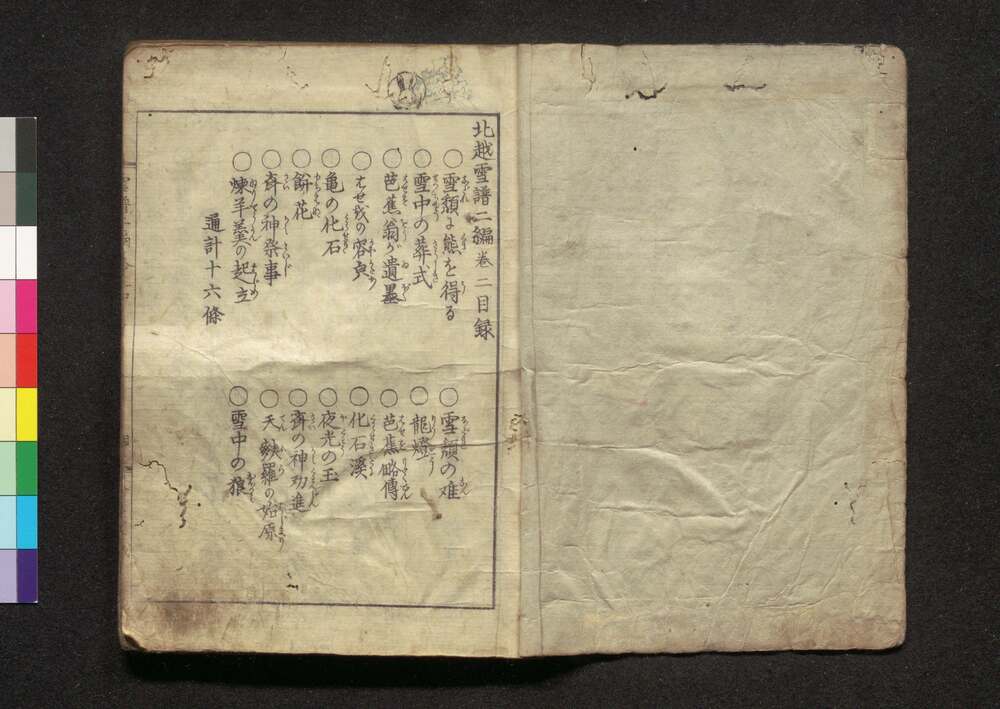 北越雪譜二編巻二目録
○雪頽に熊を得る
○雪頽の难
○雪中の葬式
○龍燈
○芭蕉翁が遺墨
○芭蕉略傳
○はせ越の容皃
○化石渓
○亀の化石
○夜光の玉
○餅花
○斎の神功進
○斎の神祭事
○天麩羅の始原
○煉羊羹の起立
○雪中の狼
通計十六條